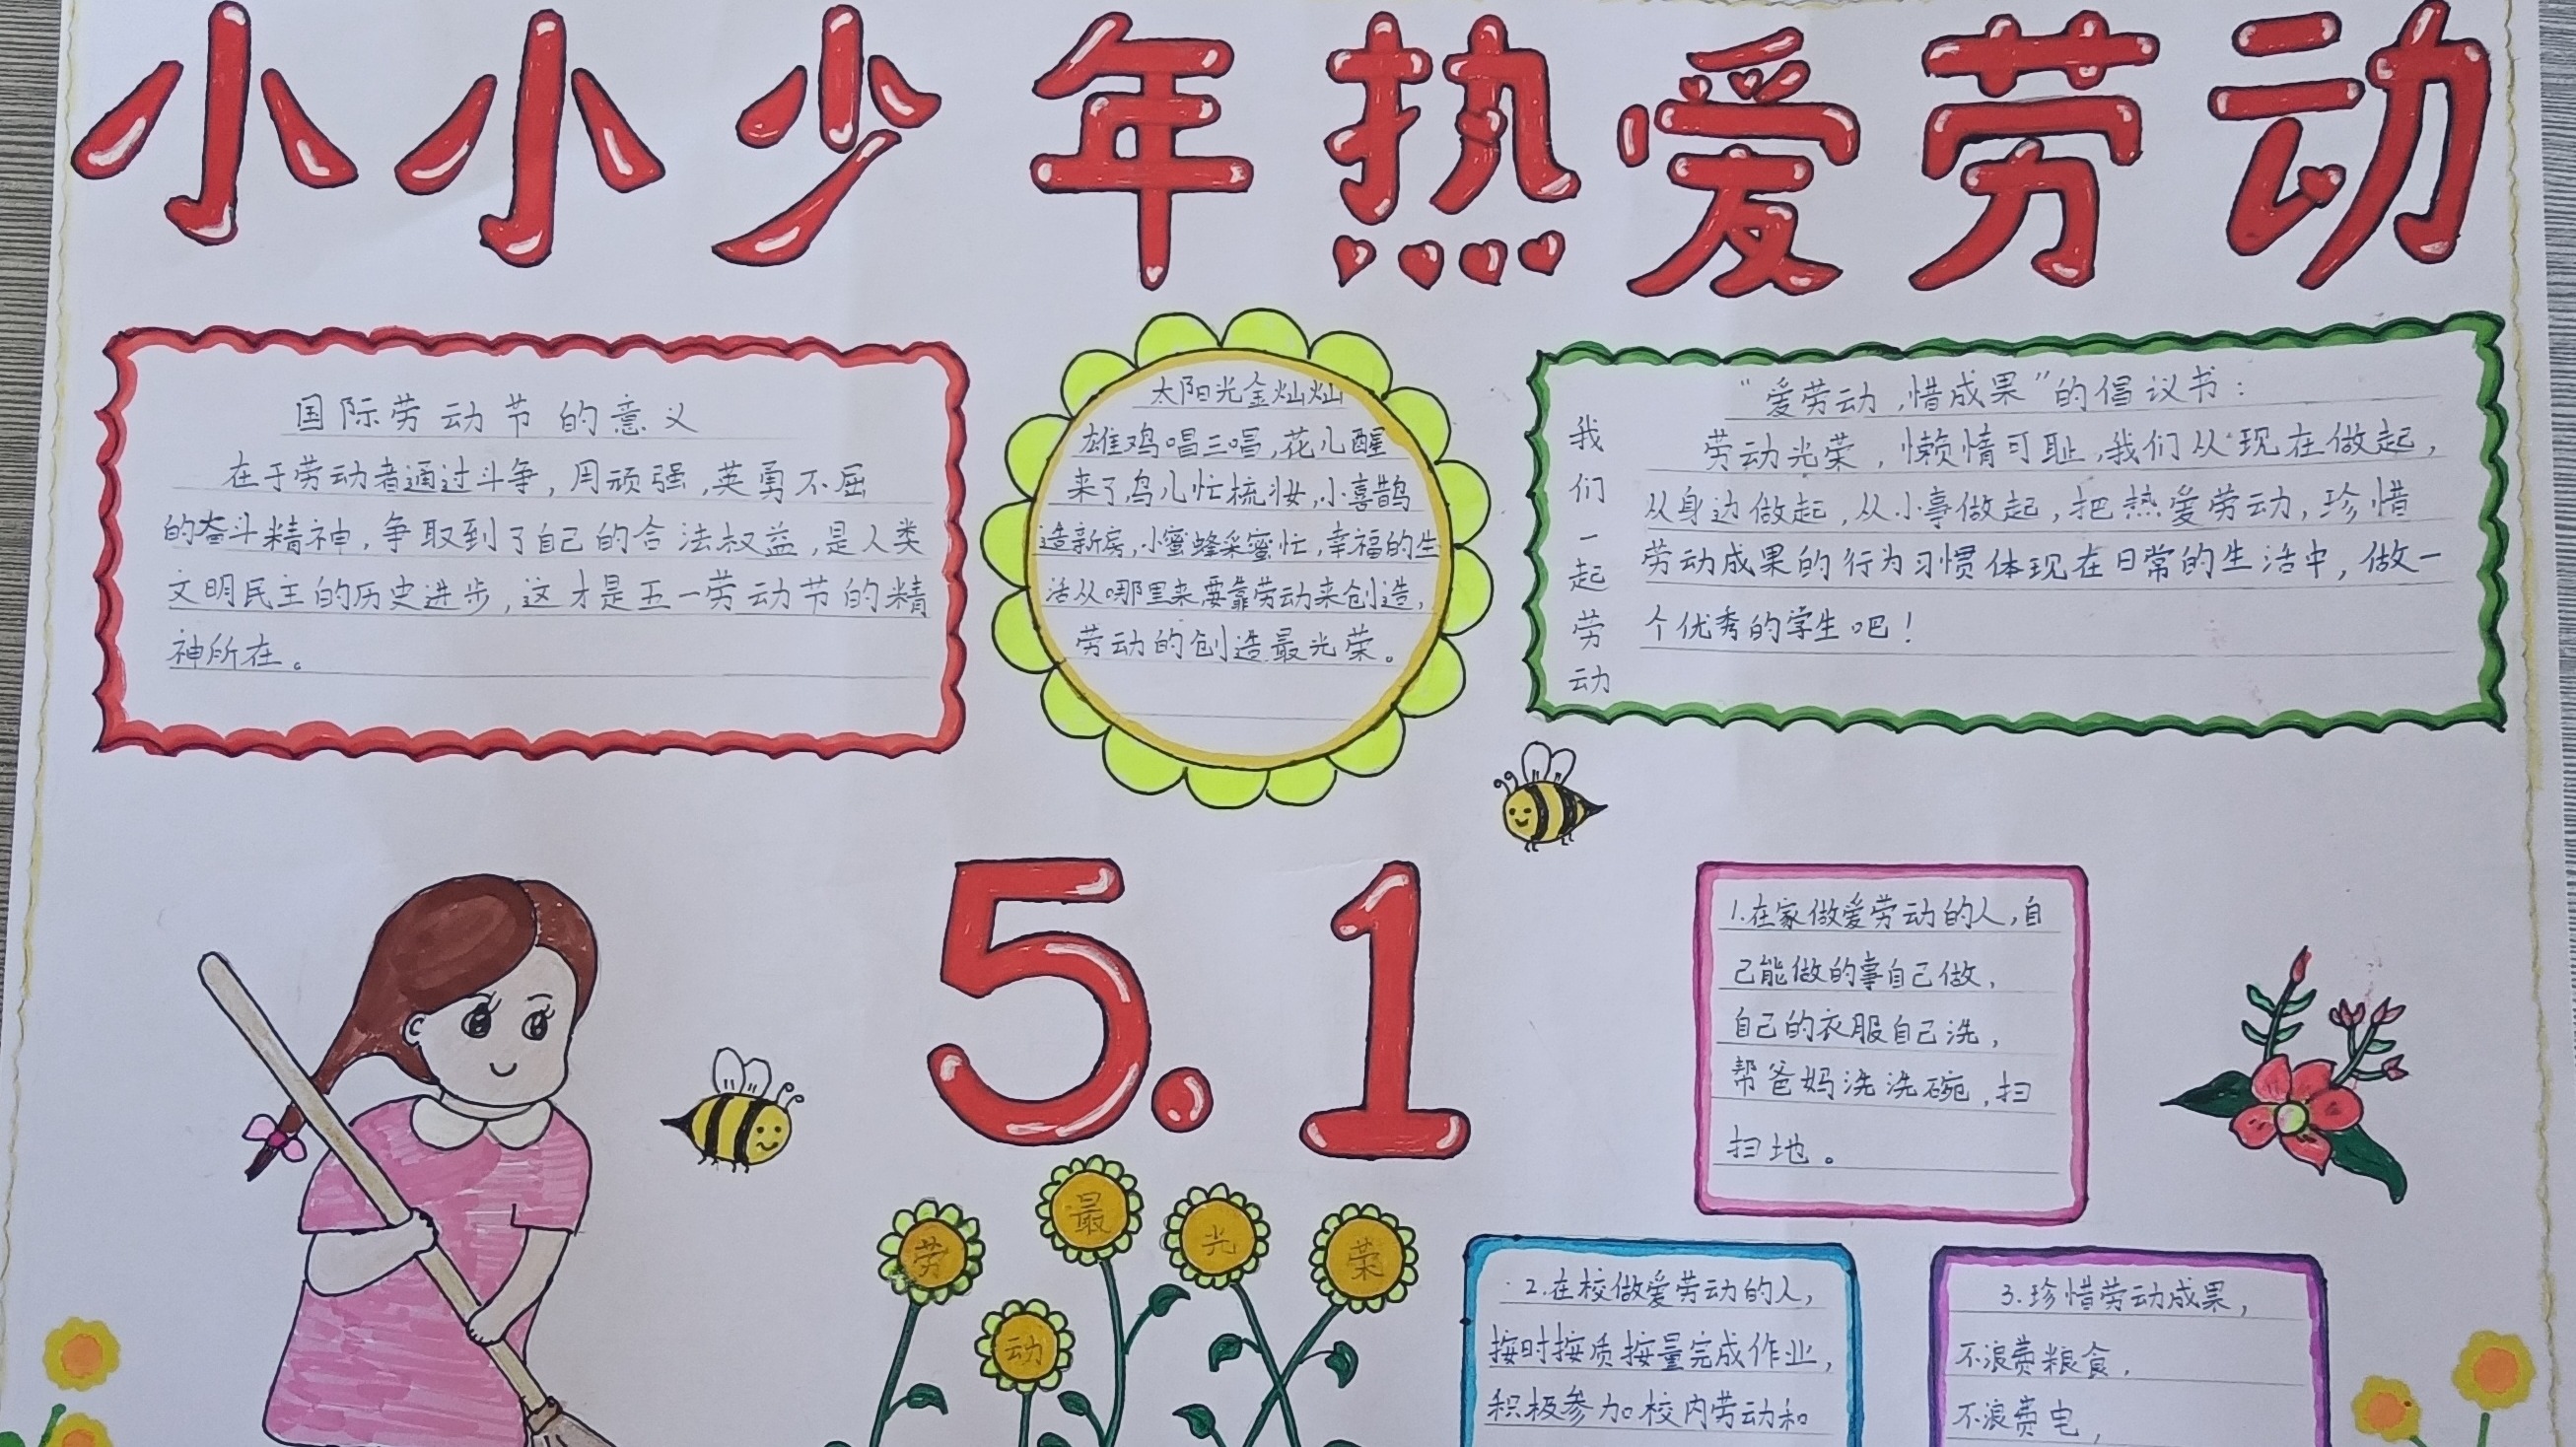 小小少年热爱劳动
国际劳动节的意义
在于劳动者通过斗争,用顽强,英勇不屈
的奋斗精神,争取到了自己的合法权益,是人类
文明民主的历史进步,这才是五一劳动节的精
神所在。
太阳光金灿灿
雄鸡唱三唱,花儿醒
来了,鸟儿忙梳妆,小喜鹊
造新房,小蜜蜂采蜜忙,幸福的生
活从哪里来要靠劳动来创造,
劳动的创造最光荣。
我们一起劳动
“爱劳动,惜成果”的倡议书:
劳动光荣,懒惰可耻,我们从现在做起,
从身边做起,从小事做起,把热爱劳动,珍惜
劳动成果的行为习惯体现在日常的生活中,做一
个优秀的学生吧!
5.1
1.在家做爱劳动的人,自
己能做的事自己做,
自己的衣服自己洗,
帮爸妈洗洗碗,扫
扫地。
劳动最光荣
2.在校做爱劳动的人,
按时按质按量完成作业,
积极参加校内劳动和
3.珍惜劳动成果,
不浪费粮食,
不浪费电,